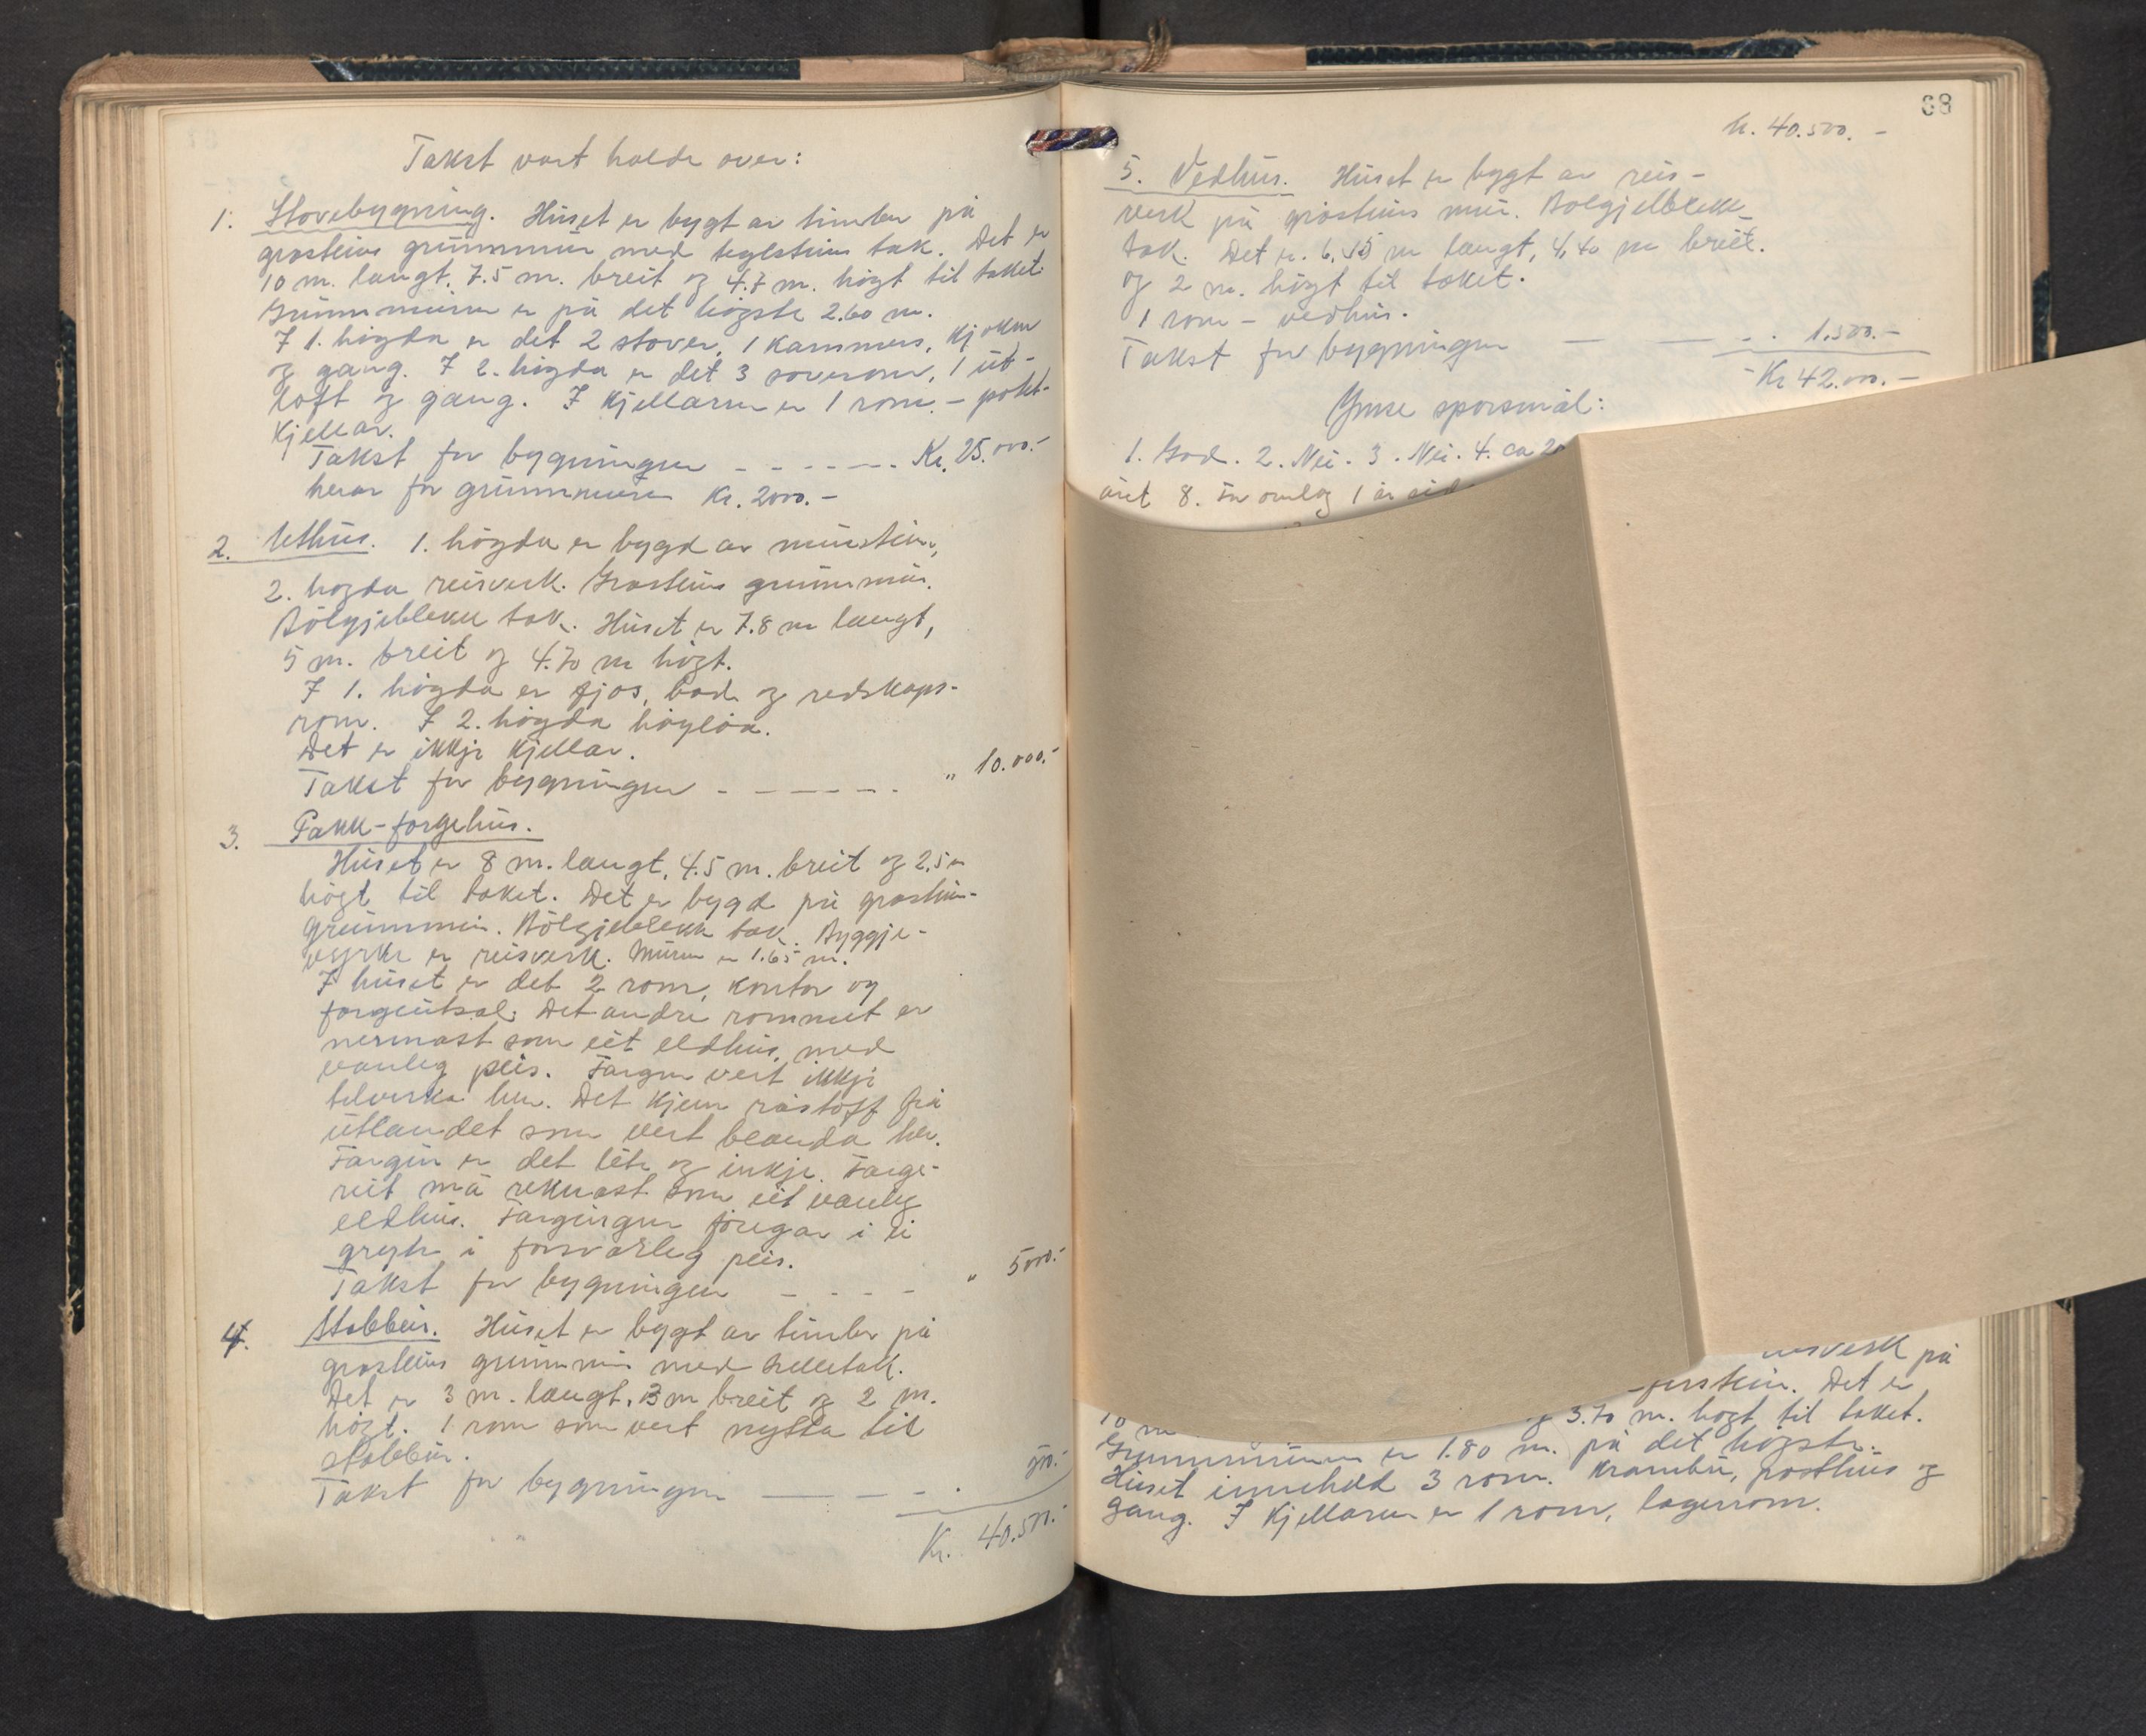 Takst vart halde over:
1. Stovebygning. Huset er bygt av timber på
grasteins grunnmur med teglsteins tak. Det er
10 m. langt, 7.5 m. breit og 4.7 m. högt til taket.
Grunnmuren er på det högste 2.60 m.
I 1. högda er det 2 stover, 1 kammers, kjøken
og gang. I 2. högda er det 3 soverom, 1 ut-
loft og gang. I kjellaren er 1 rom. - potet-
kjellar.
Takst for bygningen - - - - - - Kr. 25.000.-
herav for grunnmuren Kr. 2000.-
2. Uthus. 1. högda er bygd av murstein,
2. högda reisverk. Grasteins grunnmur.
Bölgjeblekk tak. Huset er 7.8 m langt,
5 m. breit og 4.70 m högt.
I 1. högda er fjos, bod og redskaps-
rom. I 2. högda höyløa.
Det er ikkje kjellar.
Takst for bygningen - - - - - - " 10.000.-
3. Pakk-fargehus.
Huset er 8 m. langt, 4.5 m. breit og 2,5 m
högt til taket. Det er bygd på grastein-
grunnmur. Bölgjeblekk tak. Byggje-
vyrke er reisverk. Muren er 1.65 m.
I huset er det 2 rom, kontor og
fargeutsal. Det andre rommet er
nermast som eit eldhus, med
vanleg peis. Fargen vert ikkje
tilverka her. Det kjem råstoff frå
utlandet som vert blanda her.
Fargin er det lite og inkje. Farge-
riet må reknast som eit vanleg
eldhus. Fargingen föregår i ei
gryte i forsvarleg peis.
Takst for bygningen - - - - " 5000.-
4. Stabbur. Huset er bygt av timber på
grasteins grunnmur med helletak.
Det er 3 m. langt, 3 m breit og 2 m.
högt. 1 rom som vert nytta til
stabbur.
Takst for bygningen — - - - 500.-
Kr. 40.500.-
68
kr. 40.500. -
5. Vedhus. Huset er bygt av reis-
verk på grasteins mur. Bolgjeblekk-
tak. Det er 6,45 m langt, 4,40 m breit.
og 2 m. högt til taket.
1 rom - vedhus.
Takst for bygningen — — - - 1.500.-
Kr 42.000.-
Ymse sporsmål:
1. God. 2. Nei. 3. Nei. 4. ca 20
året 8. for omlag 1 år
reisverk på
Det er
10 m og 3.70 m. högt til taket.
Grunnmuren er 1.80 m. på det högste.
Huset inneheld 3 rom. Krambu, posthus og
gang. I kjellaren er 1 rom, lagerrom.